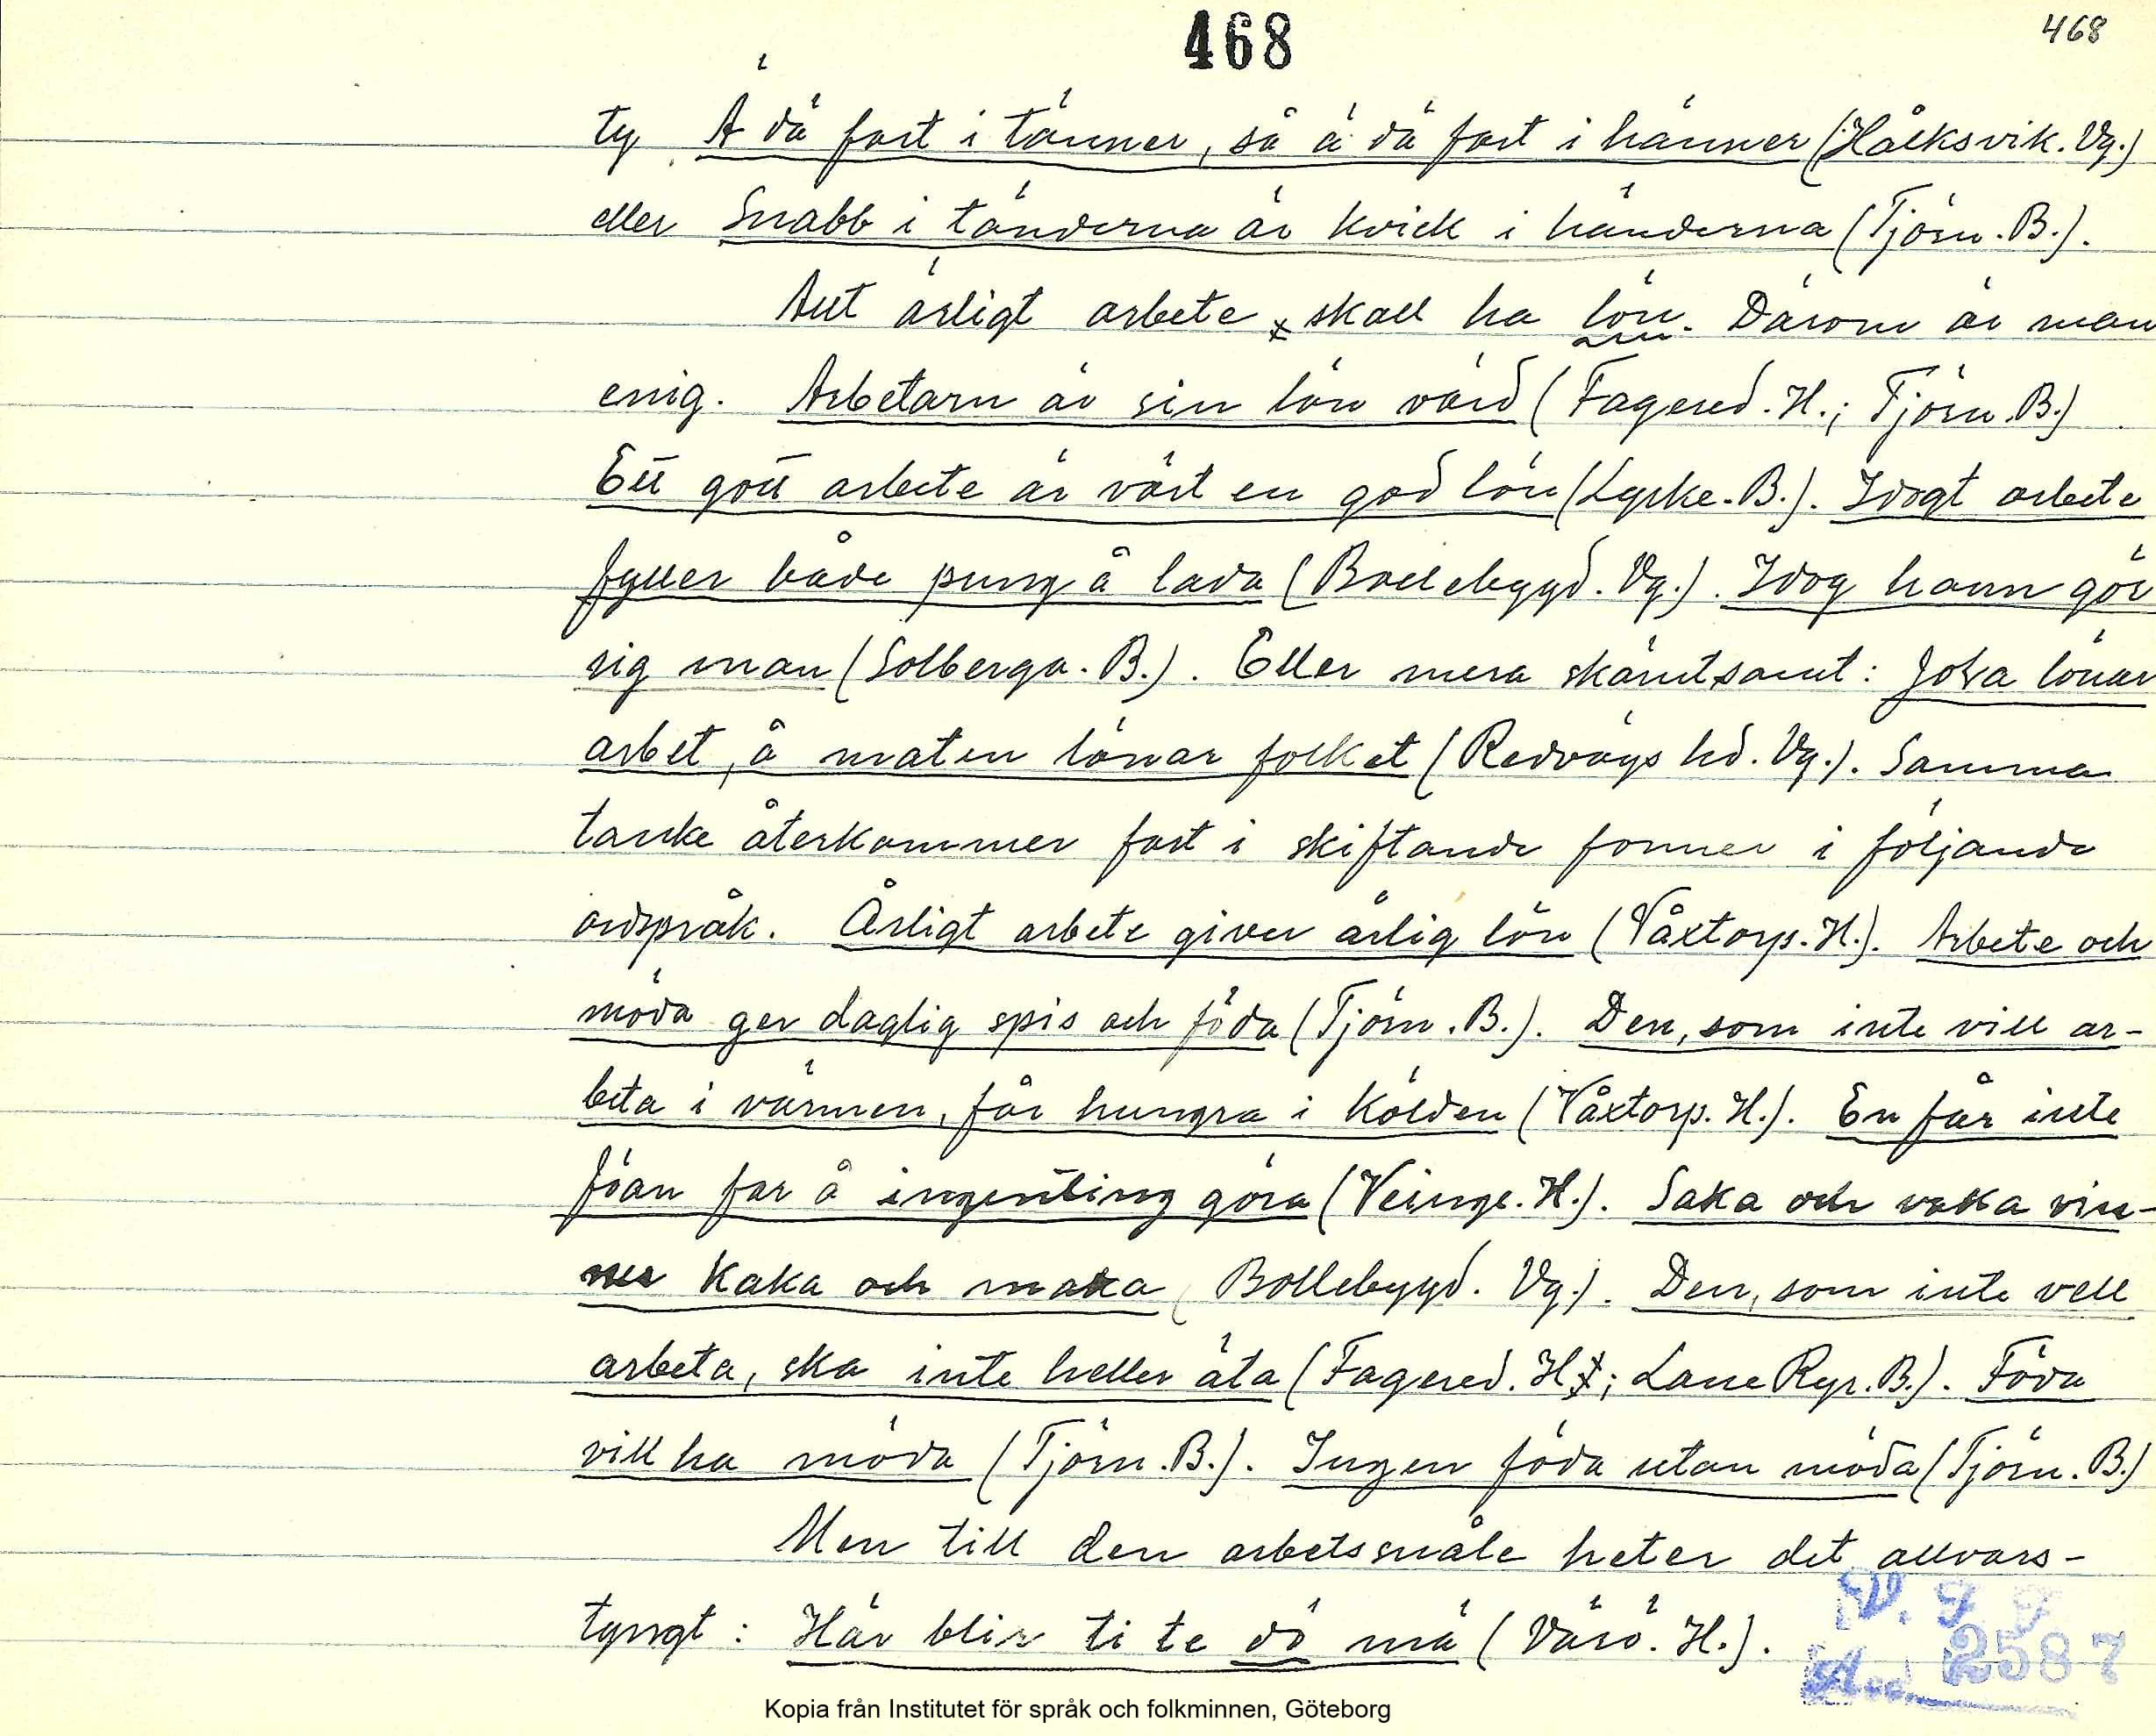 468
468
ty Ä dä fort i tänner, så ä dä fort i hänner (Hålksvik. Vg.)
eller Snabb i tänderna är kvick i händerna (Tjörn. B.).
Allt ärligt arbete skall ha lön. Därom är man
enig. Arbetarn är sin lön värd (Fagered. H.; Tjörn. B.)
Ett gott arbete är värt en god lön (Lycke. B.). Idogt arbete
fyller både pung å lada (Bollebygd. Vg.). Idog hann gör
sig man (Solberga. B.). Eller mera skämtsamt: Jola lönar
arbet, å maten lönar folket (Redvägs hd. Vg.). Samma
tanke återkommer fast i skiftande former i följande
ordspråk. Ärligt arbete giver ärlig lön (Våxtorp. H.). Arbete och
möda ger daglig spis och föda (Tjörn. B.). Den, som inte vill ar-
beta i värmen, får hungra i kölden (Våxtorp. H.). En får inte
föan for å ingenting göra (Veinge. H.). Saka och vaka vin-
ner kaka och maka (Bollebygd. Vg.). Den, som inte vell
arbeta, ska inte heller äta (Fagered. H.; Lane Ryr. B.). Föda
vill ha möda (Tjörn. B.). Ingen föda utan möda (Tjörn. B.)
Men till den arbetssnåle heter det allvars-
tyngt: Här blir ti te dö mä (Värö. H.).
V. G. F.
Acc. 2587
Kopia från Institutet för språk och folkminnen, Göteborg